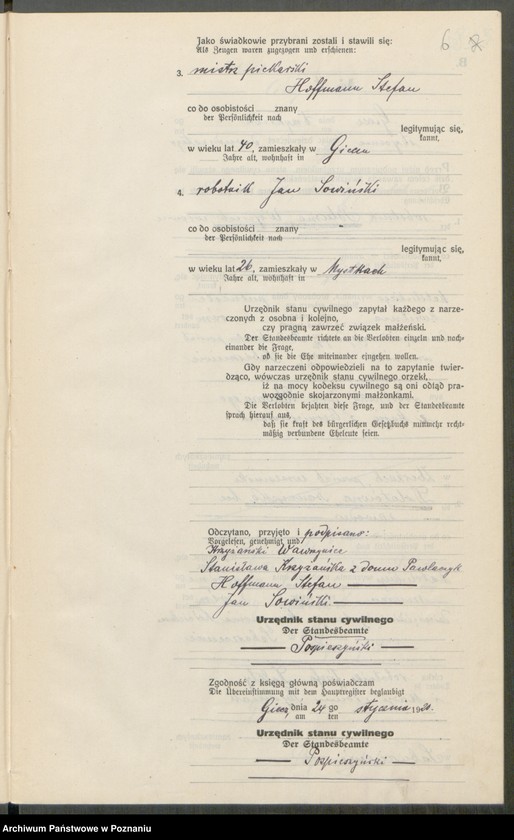 6
Jako świadkowie przybrani zostali i stawili się:
Als Zeugen waren zugezogen und erschienen:
3. mistrz piekarski
Hoffmann Stefan
co do osobistości znany
der Persönlichkeit nach
legitymując się,
kannt,
w wieku lat 40, zamieszkały w Giecu
Jahre alt, wohnhaft in
4. robotnik Jan Sowiński
co do osobistości znany
der Persönlichkeit nach
legitymując się,
kannt,
w wieku lat 26, zamieszkały w
Jahre alt, wohnhaft in
Urzędnik stanu cywilnego zapytał każdego z narze-
czonych z osobna i kolejno,
czy pragną zawrzeć związek małżeński.
Der Standesbeamte richtete an die Verlobten einzeln und nach-
einander die Frage,
ob sie die Ehe miteinander eingehen wollen.
Gdy narzeczeni odpowiedzieli na to zapytanie twier-
dząco, wówczas urzędnik stanu cywilnego orzekł,
iż na mocy kodeksu cywilnego są oni odtąd pra-
wozgodnie skojarzonymi małżonkami.
Die Verlobten bejahten diese Frage, und der Standesbeamte
sprach hierauf aus,
daß sie kraft des bürgerlichen Gesetzbuchs nunmehr recht-
mäßig verbundene Eheleute seien.
Odczytano, przyjęto i podpisano:
Vorgelesen, genehmigt und
Krzyżański Wawrzyniec
Stanisława Krzyżańska z domu Pawlaczyk
Hoffmann Stefan
Jan Sowiński
Urzędnik stanu cywilnego
Der Standesbeamte
Pospieszyński
Zgodność z księgą główną poświadczam
Die Übereinstimmung mit dem Hauptregister beglaubigt
Giecz, dnia 24 go stycznia 19
am ten
Urzędnik stanu cywilnego
Der Standesbeamte
Pospieszyński
Archiwum Państwowe w Poznaniu